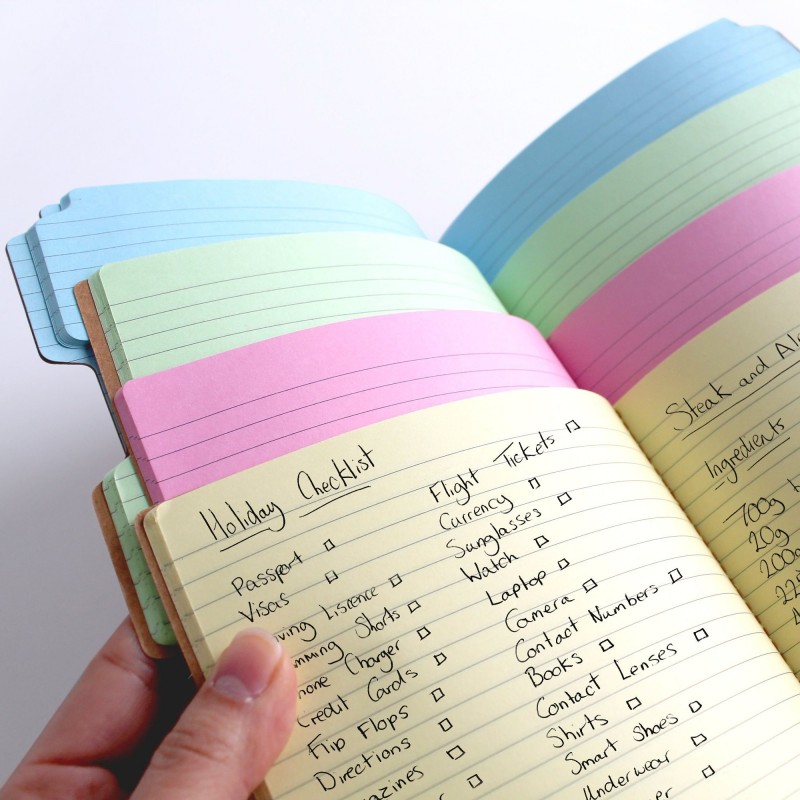 Holiday Checklist
Passport
Visas
iving Liscence
mming Shorts
hone Charger
Credit Cards
Flip Flops
Directions
azines
Flight Tickets
Currency
Sunglasses
Watch
Laptop
Camera
Contact Numbers
Books
Contact Lenses
Shirts
Smart Shoes
Underwear
Steak and
Ingredients
700g
20g
200g